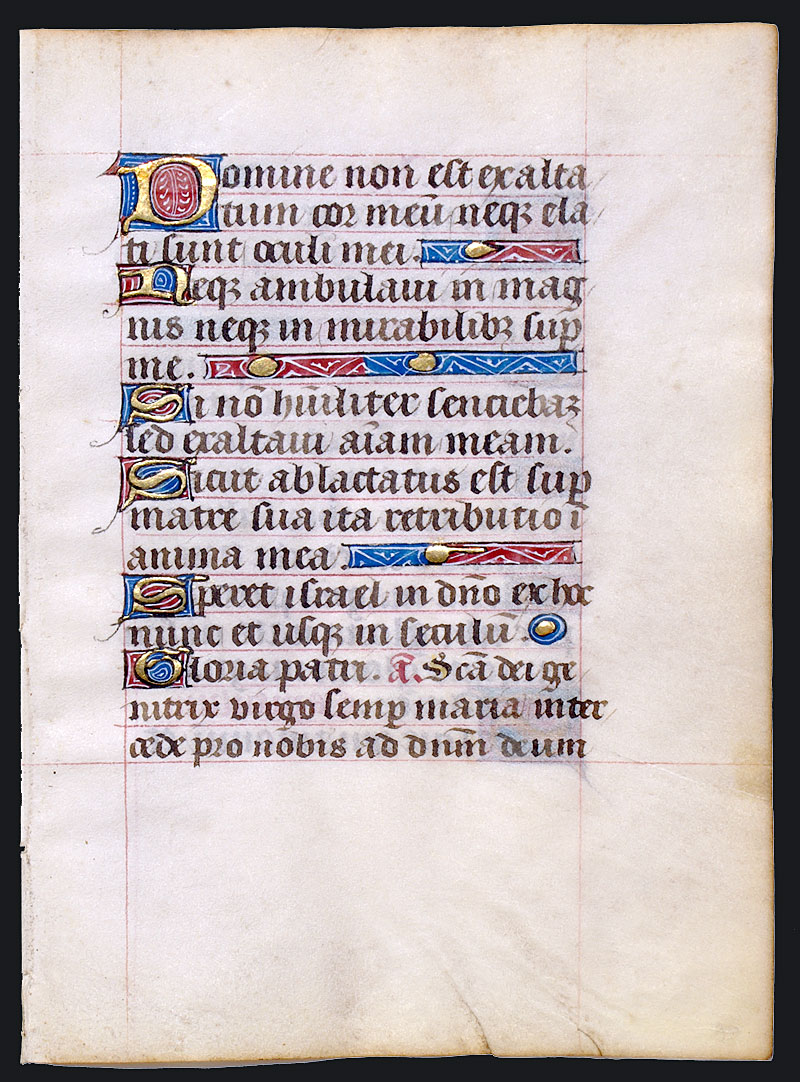 Domine non est exalta
tum cor meū neqꝫ ela
ti sunt oculi mei.
Neqꝫ ambulaui in mag
nis neqꝫ in mirabilibꝫ suꝑ
me.
Si nō hūiliter sentiebaꝫ
sed exaltaui aīam meam.
Sicut ablactatus est suꝑ
matre sua ita retributio ī
anima mea.
Speret israel in dn̄o ex hoc
nunc et usqꝫ in seculū.
Gloria patri. a͞. Scā dei ge
nitrix virgo semꝑ maria inter
cede pro nobis ad dn̄m deum